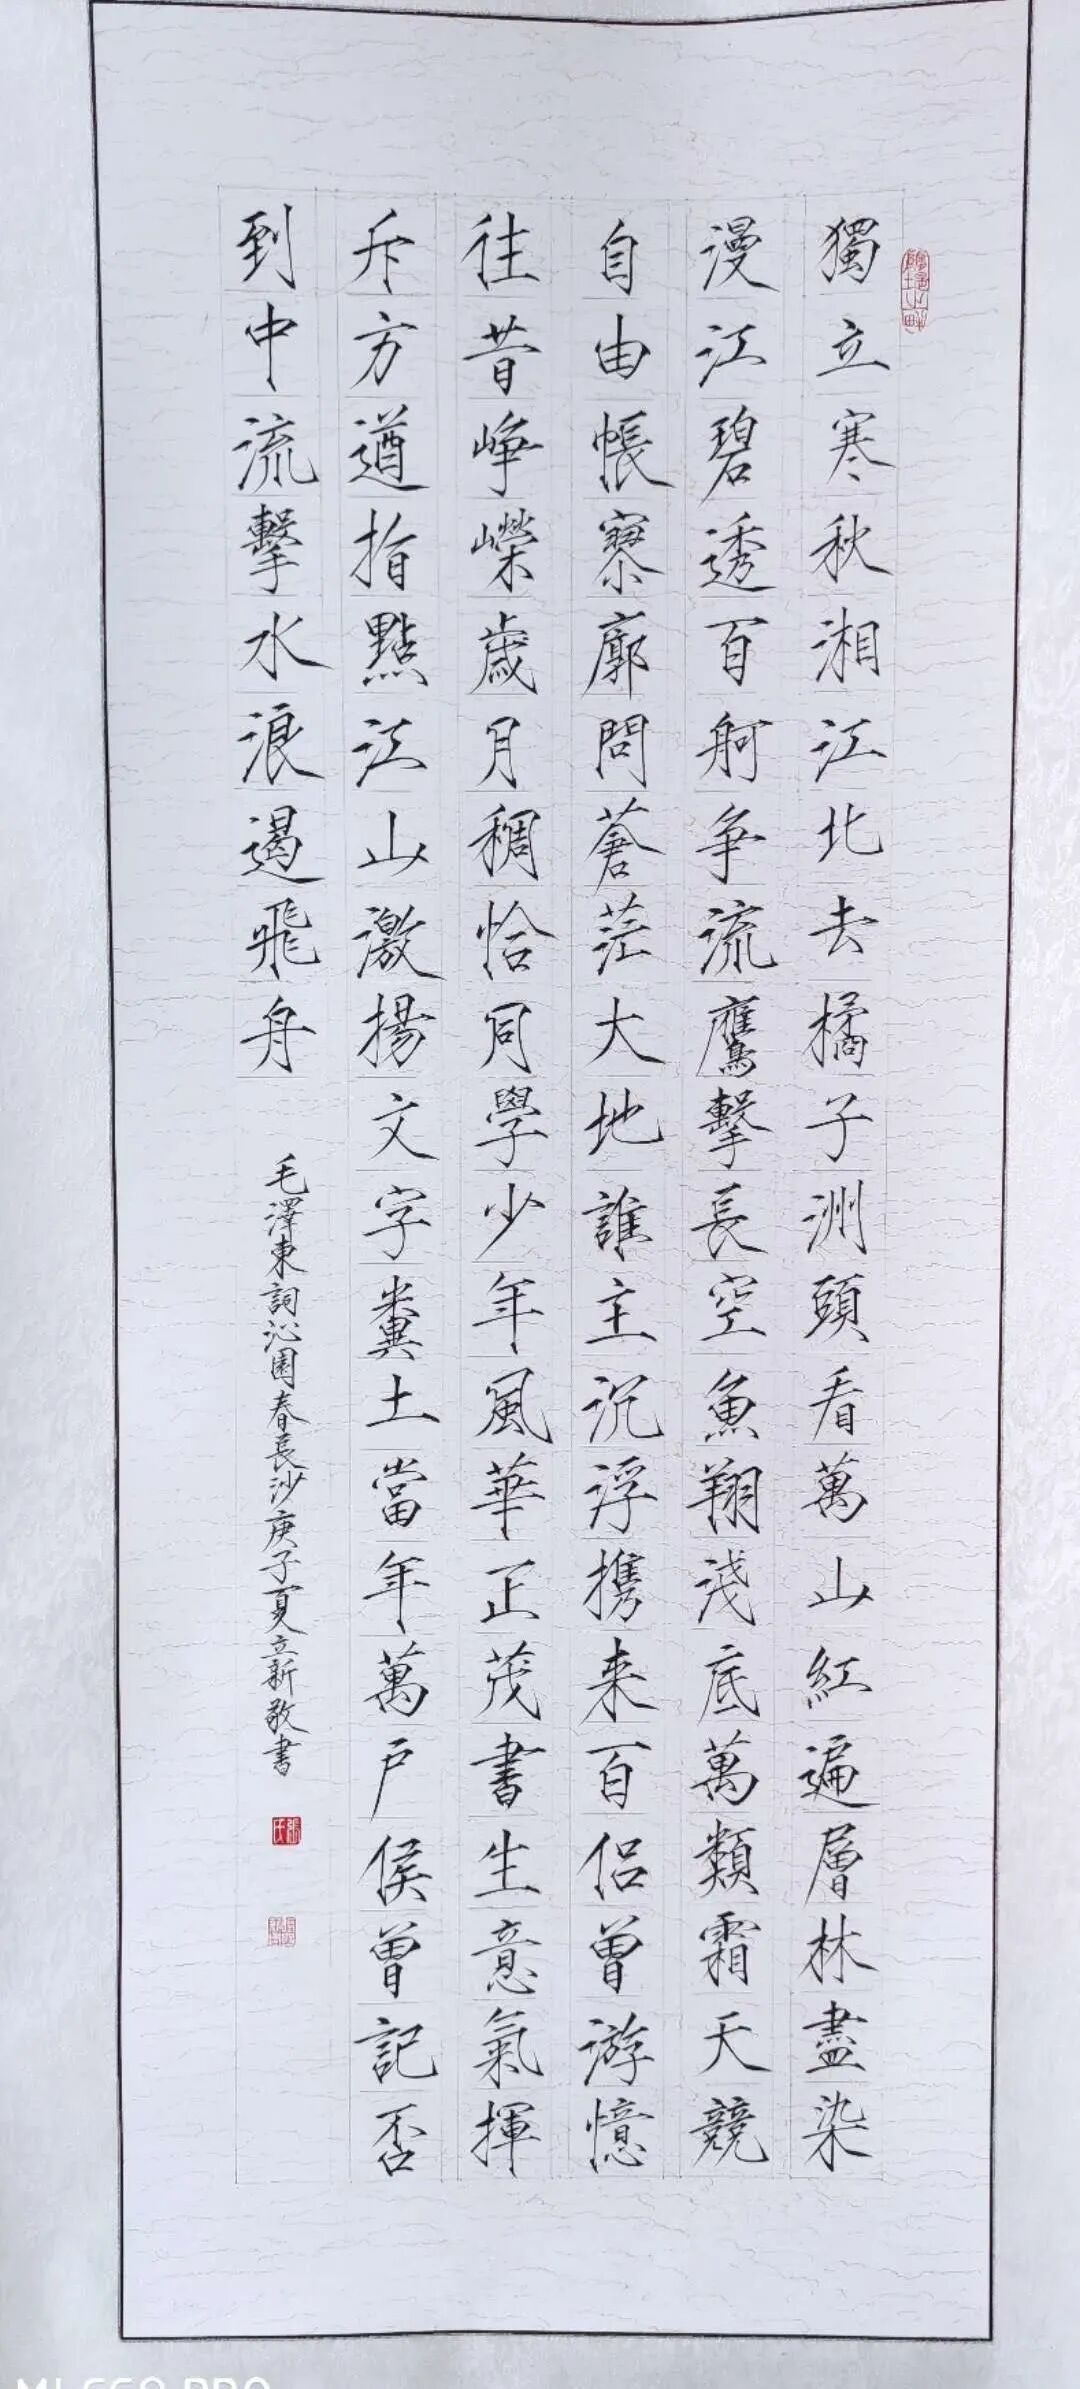 獨立寒秋湘江北去橘子洲頭看萬山紅遍層林盡染
漫江碧透百舸争流鷹擊長空魚翔淺底萬類霜天競
自由悵寥廓問蒼茫大地誰主沉浮携来百侣曾游憶
往昔崢嶸歲月稠恰同學少年風華正茂書生意氣揮
斥方遒指點江山激揚文字糞土當年萬户侯曾記否
到中流擊水浪遏飛舟
毛澤東詞沁園春長沙庚子夏立新敬書
張氏